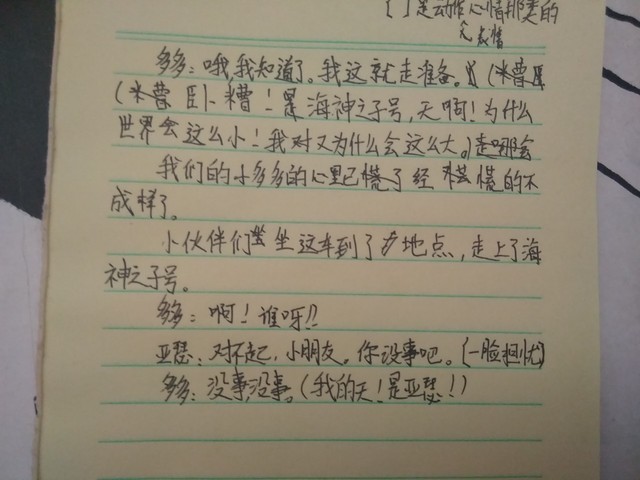 [ ]是动作心情那类的
表情
多多：哦我知道了。我这就走准备。(米曹
(米曹 卧糟！是海神之子号，天啊！为什么
世界会这么小！我对又为什么会这么大。)走哪会
我们的小多多的心里已慌了经 慌的不
成样了。
小伙伴们坐这车到了地点，走上了海
神之子号。
多多：啊！谁呀!!
亚瑟：对不起，小朋友。你没事吧。[一脸担忧]
多多：没事，没事。(我的天！是亚瑟！)